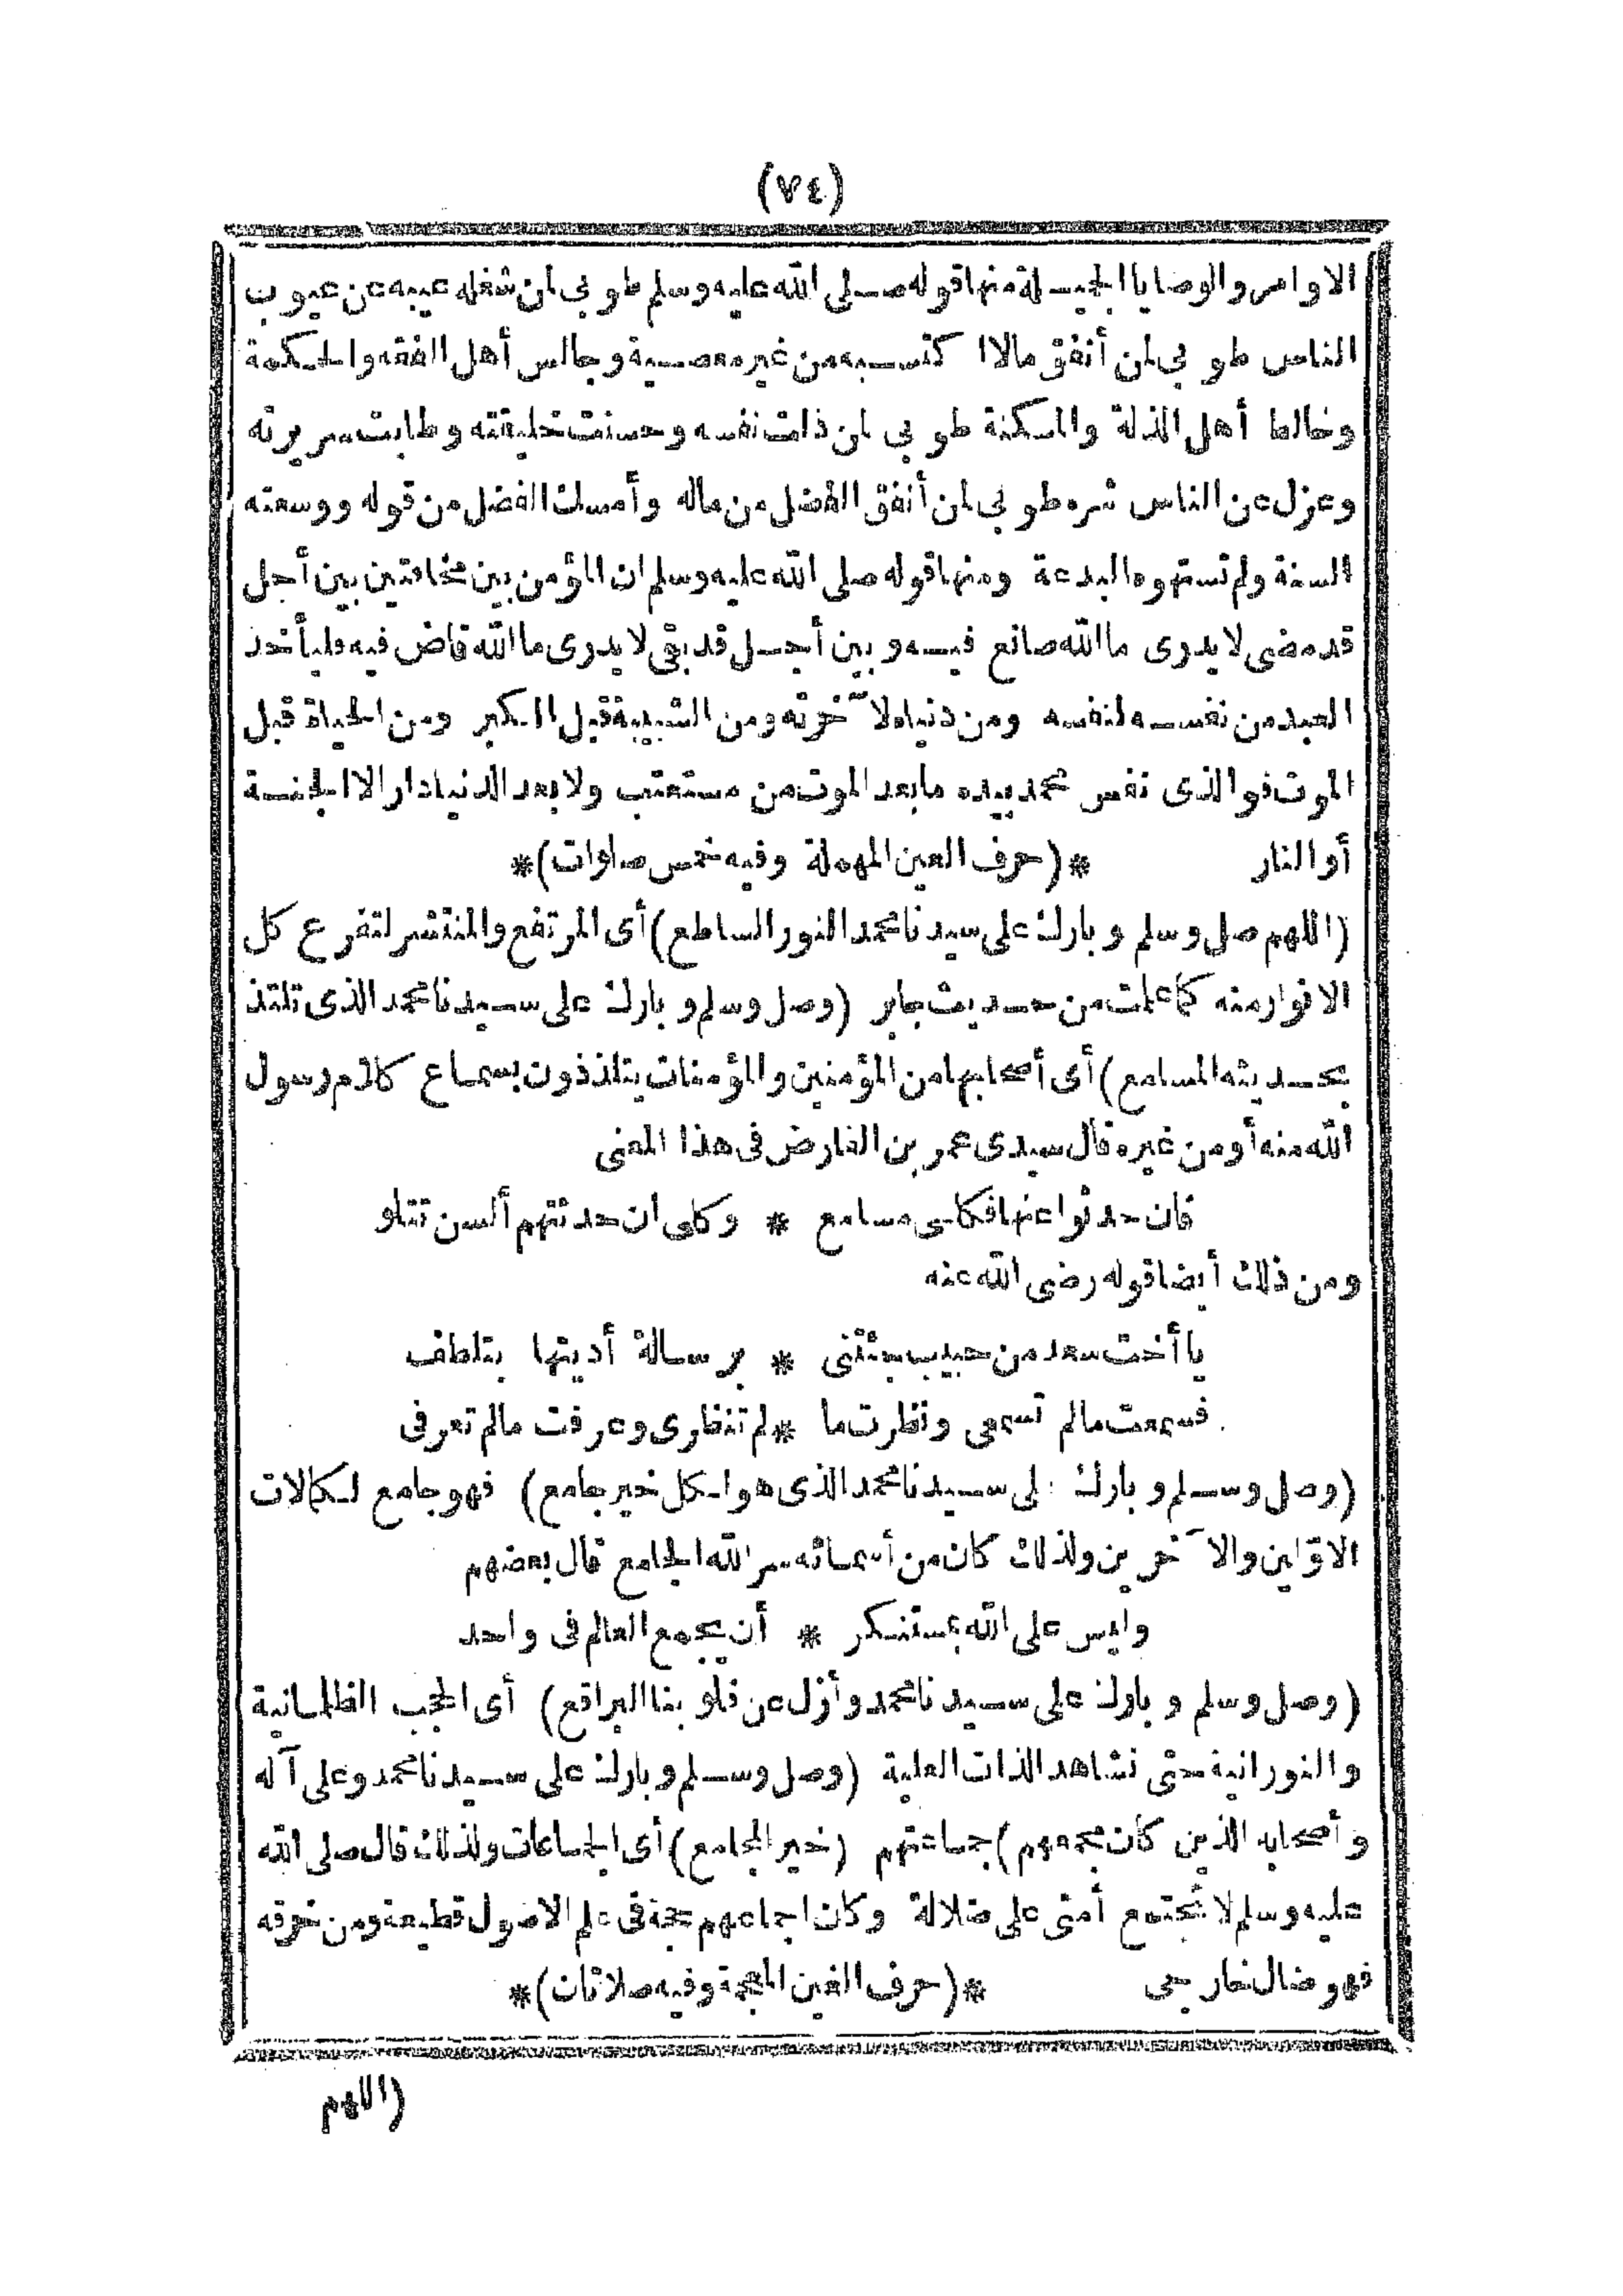 (٧٤)
الاوامر والوصايا الجميلة منها قوله صلى الله عليه وسلم طوبى لمن شغله عيبه عن عيوب
الناس طوبى لمن أنفق مالا اكتسبه من غير معصية وجالس أهل الفقه والحكمة
وخالط أهل الذلة والمسكنة طوبى لمن ذلت نفسه وحسنت خليقته وطابت سريرته
وعزل عن الناس شره طوبى لمن أنفق الفضل من ماله وأمسك الفضل من قوله ووسعته
السنة ولم تستهوه البدعة ومنها قوله صلى الله عليه وسلم ان المؤمن بين مخافتين بين أجل
قد مضى لا يدرى ما الله صانع فيه وبين أجل قد بقى لا يدرى ما الله قاض فيه فليأخذ
العبد من نفسه لنفسه ومن دنياه لآخرته ومن الشبيبة قبل الكبر ومن الحياة قبل
الموت فوالذى نفس محمد بيده ما بعد الموت من مستعتب ولا بعد الدنيا دار الا الجنة
أو النار *(حرف العين المهملة وفيه خمس صلوات)*
(اللهم صل وسلم وبارك على سيدنا محمد النور الساطع) أى المرتفع والمنتشر لتفرع كل
الانوار منه كما علمت من حديث جابر (وصل وسلم وبارك على سيدنا محمد الذى تلتذ
بحديثه المسامع) أى أصحابها من المؤمنين والمؤمنات يتلذذون بسماع كلام رسول
الله منه أو من غيره قال سيدى عمر بن الفارض فى هذا المعنى
فان حدثوا عنها فكلى مسامع * وكلى ان حدثتهم ألسن تتلو
ومن ذلك أيضا قوله رضى الله عنه
يا أخت سعد من حبيب جئتنى * برسالة أديتها بتلطف
فسمعت مالم تسمعى ونظرت ما * لم تنظرى وعرفت مالم تعرفى
(وصل وسلم وبارك على سيدنا محمد الذى هو لكل خير جامع) فهو جامع لكمالات
الاوّلين والآخرين ولذلك كان من أسمائه سر الله الجامع قال بعضهم
وليس على الله بمستنكر * أن يجمع العالم فى واحد
(وصل وسلم وبارك على سيدنا محمد وأزل عن قلوبنا البراقع) أى الحجب الظلمانية
والنورانية حتى نشاهد الذات العلية (وصل وسلم وبارك على سيدنا محمد وعلى آله
وأصحابه الذين كان مجمعهم) جماعتهم (خير المجامع) أى الجماعات ولذلك قال صلى الله
عليه وسلم لا تجتمع أمتى على ضلالة وكان اجماعهم حجة فى علم الاصول قطيعة ومن خرقه
فهو ضال خارجى *(حرف الغين المعجمة وفيه صلاتان)*
(اللهم